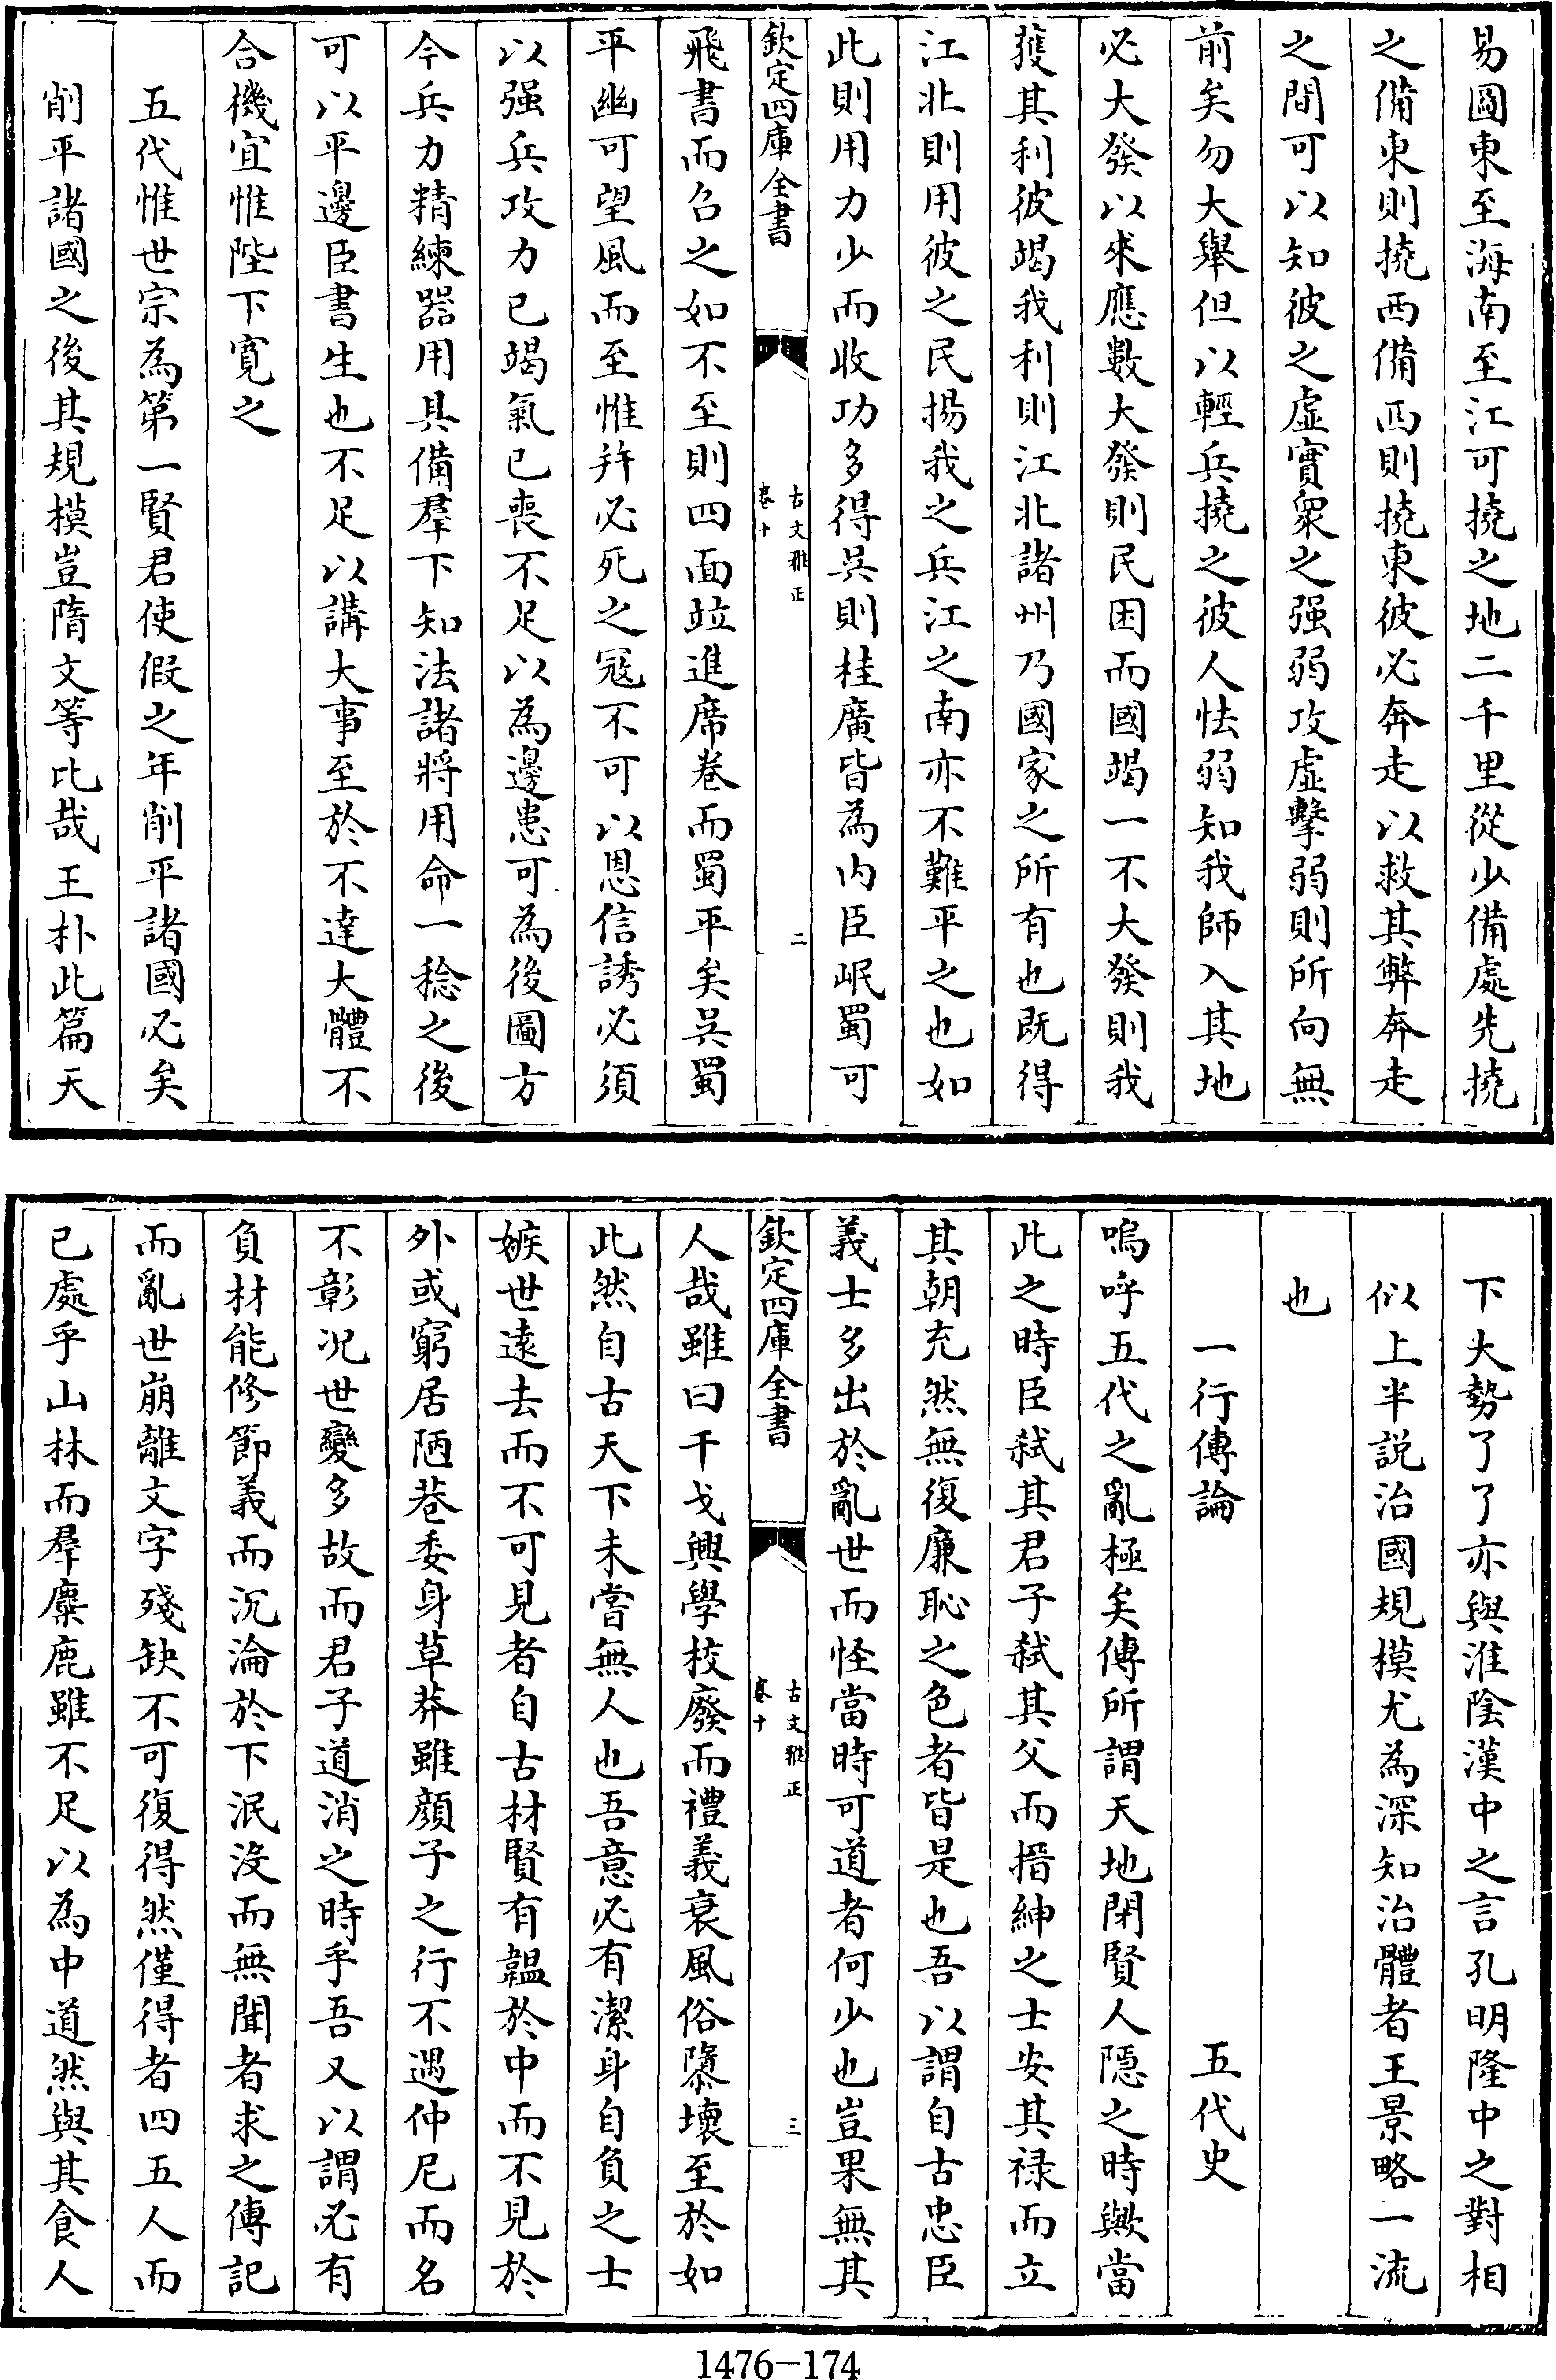 易圖東至海南至江可撓之地二千里從少備處先撓
之備東則撓西備西則撓東彼必奔走以救其弊奔走
之間可以知彼之虛實衆之强弱攻虛擊弱則所向無
前矣勿大舉但以輕兵撓之彼人怯弱知我師入其地
必大發以來應數大發則民困而國竭一不大發則我
獲其利彼竭我利則江北諸州乃國家之所有也既得
江北則用彼之民揚我之兵江之南亦不難平之也如
此則用力少而收功多得吳則桂廣皆為内臣岷蜀可
欽定四庫全書
古文雅正
卷十
二
飛書而召之如不至則四面竝進席卷而蜀平矣吳蜀
平幽可望風而至惟并必死之冦不可以恩信誘必須
以强兵攻力已竭氣已喪不足以為邊患可為後圖方
今兵力精練器用具備羣下知法諸將用命一稔之後
可以平邊臣書生也不足以講大事至於不達大體不
合機宜惟陛下寛之
五代惟世宗為第一賢君使假之年削平諸國必矣
削平諸國之後其規模豈隋文等比哉王朴此篇天
下大勢了了亦與淮陰漢中之言孔明隆中之對相
似上半説治國規模尤為深知治體者王景略一流
也
一行傳論 五代史
嗚呼五代之亂極矣傳所謂天地閉賢人隱之時歟當
此之時臣弑其君子弑其父而搢紳之士安其禄而立
其朝充然無復廉恥之色者皆是也吾以謂自古忠臣
義士多出於亂世而怪當時可道者何少也豈果無其
欽定四庫全書
古文雅正
卷十
三
人哉雖曰干戈興學校廢而禮義衰風俗隳壞至於如
此然自古天下未嘗無人也吾意必有潔身自負之士
嫉世遠去而不可見者自古材賢有韞於中而不見於
外或窮居陋巷委身草莽雖顔子之行不遇仲尼而名
不彰况世變多故而君子道消之時乎吾又以謂必有
負材能修節義而沉淪於下泯没而無聞者求之傳記
而亂世崩離文字殘缺不可復得然僅得者四五人而
已處乎山林而羣麋鹿雖不足以為中道然與其食人
1476-174